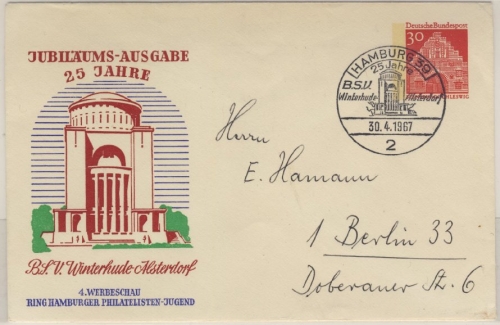 JUBILÄUMS-AUSGABE
25 JAHRE
B.S.V. Winterhude-Alsterdorf
4. WERBESCHAU
RING HAMBURGER PHILATELISTEN-JUGEND
Deutsche Bundespost
30
HAMBURG 39
25 Jahre
B.S.V.
Winterhude Alsterdorf
30.4.1967
2
Herrn
E. Hamann
1 Berlin 33
Doberaner Str. 6